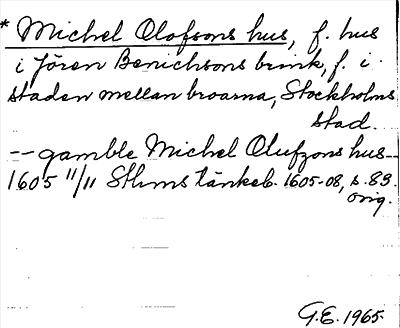 * Michel Olofsons hus, f. hus
i Jören Benichsons brink, f. i
staden mellan broarna, Stockholms
stad.
-- gamble Michel Olufzons hus --
1605 11/11 Sthms tänkeb. 1605-08, s. 89.
orig.
G.E. 1965.